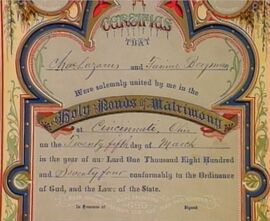 CERTIFIES
THAT
Chas Lazarus and Fannie Dryman
Were solemnly united by me in the
Holy Bonds of Matrimony
at Cincinnati, Ohio
on the Twenty fifth day of March
in the year of our Lord One Thousand Eight Hundred
and Seventy four conformably to the Ordinance
of God, and the Laws of the State.
In Presence of Signed